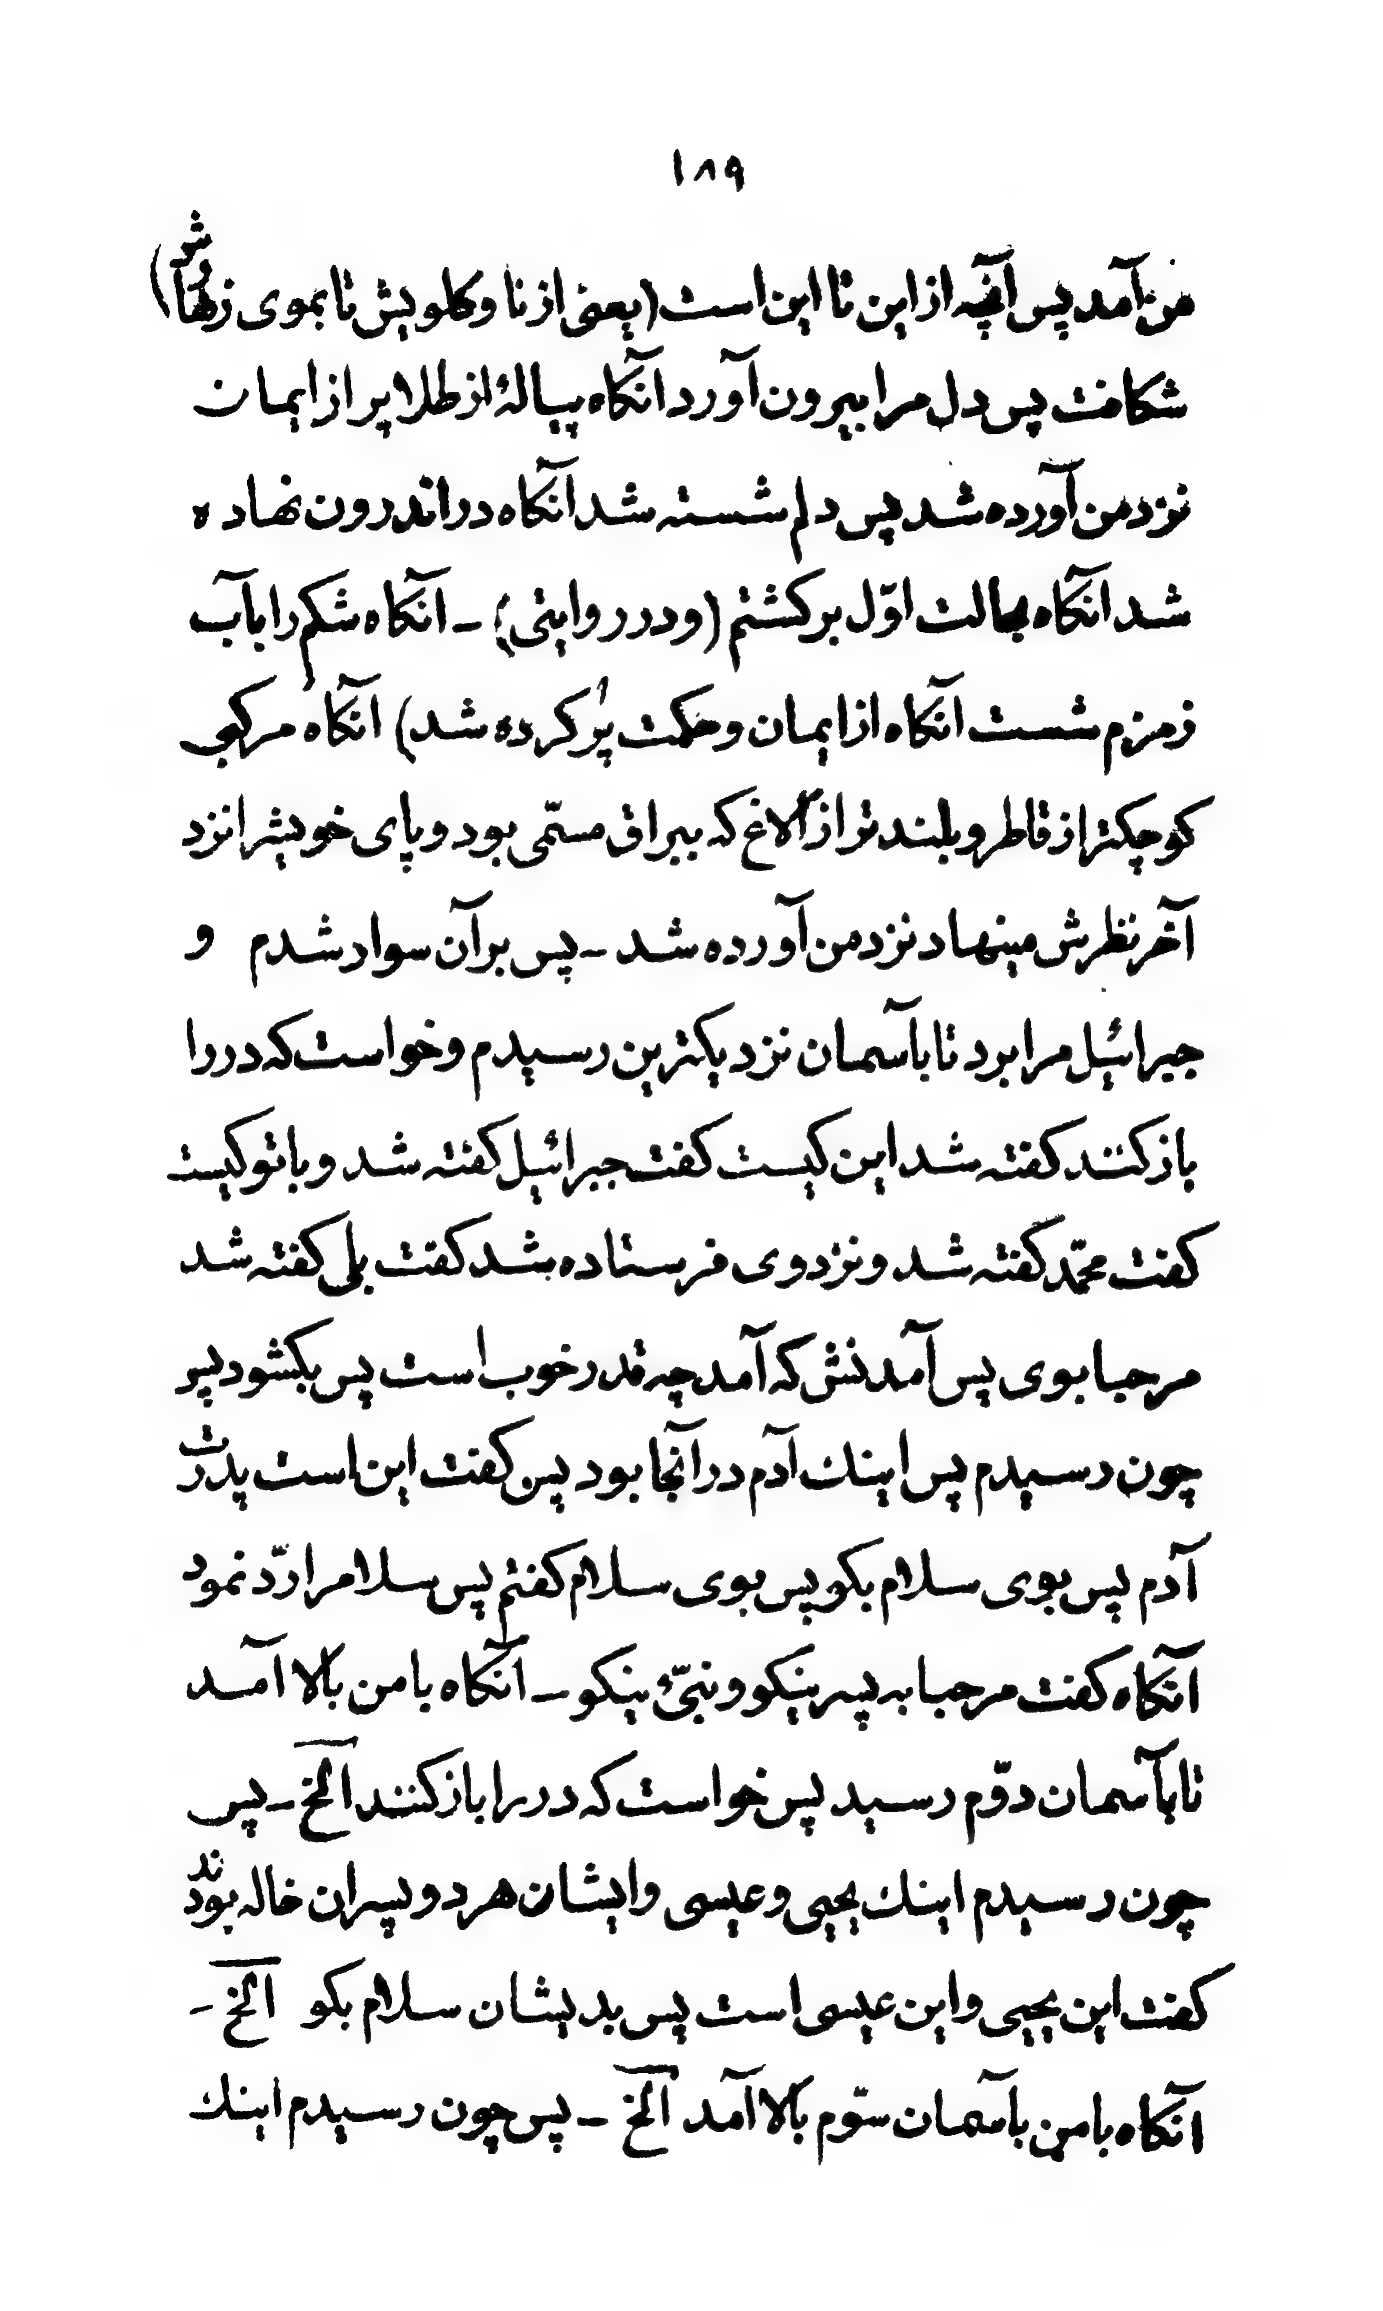 ۱۸۹
من آمد پس آنچه از این تا این است (یعنی از نا وکلویش تا بموی زهارش)
شکافت پس دل مرا بیرون آورد آنکاه پیالهٔ از طلا پر از ایمان
نزد من آورده شد پس دلم شسته شد آنکاه در اندرون نهاده
شد آنکاه بحالت اوّل برکشتم (و در روایتی) – آنکاه شکم را بآب
زمزم شست آنکاه از ایمان و حکمت پُر کرده شد) آنکاه مرکبی
کوچکتر از قاطر و بلند تر از الاغ که ببراق مسمّی بود و پای خویشرا نزد
آخر نظرش مینهاد نزد من آورده شد – پس بر آن سوار شدم و
جبرائیل مرا برد تا بآسمان نزدیکترین رسیدم و خواست که در را
باز کنند کفته شد این کیست کفت جبرائیل کفته شد و با تو کیست
کفت محمّد کفته شد و نزد وی فرستاده بشد کفت بلی کفته شد
مرحبا بوی پس آمدنش که آمد چه قدر خوب است پس بکشود پس
چون رسیدم پس اینك آدم در آنجا بود پس کفت این است پدرت
آدم پس بوی سلام بکو پس بوی سلام کفتم پس سلام را ردّ نمود
آنکاه کفت مرحبا به پسر نیکو و نبیّ نیکو – آنکاه با من بالا آمد
تا بآسمان دوّم رسید پس خواست که در را باز کنند الخ – پس
چون رسیدم اینك یحیی و عیسی و ایشان هر دو پسران خاله بودند
کفت این یحیی و این عیسی است پس بدیشان سلام بکو الخ –
آنکاه با من بآسمان سوّم بالا آمد الخ – پس چون رسیدم اینك